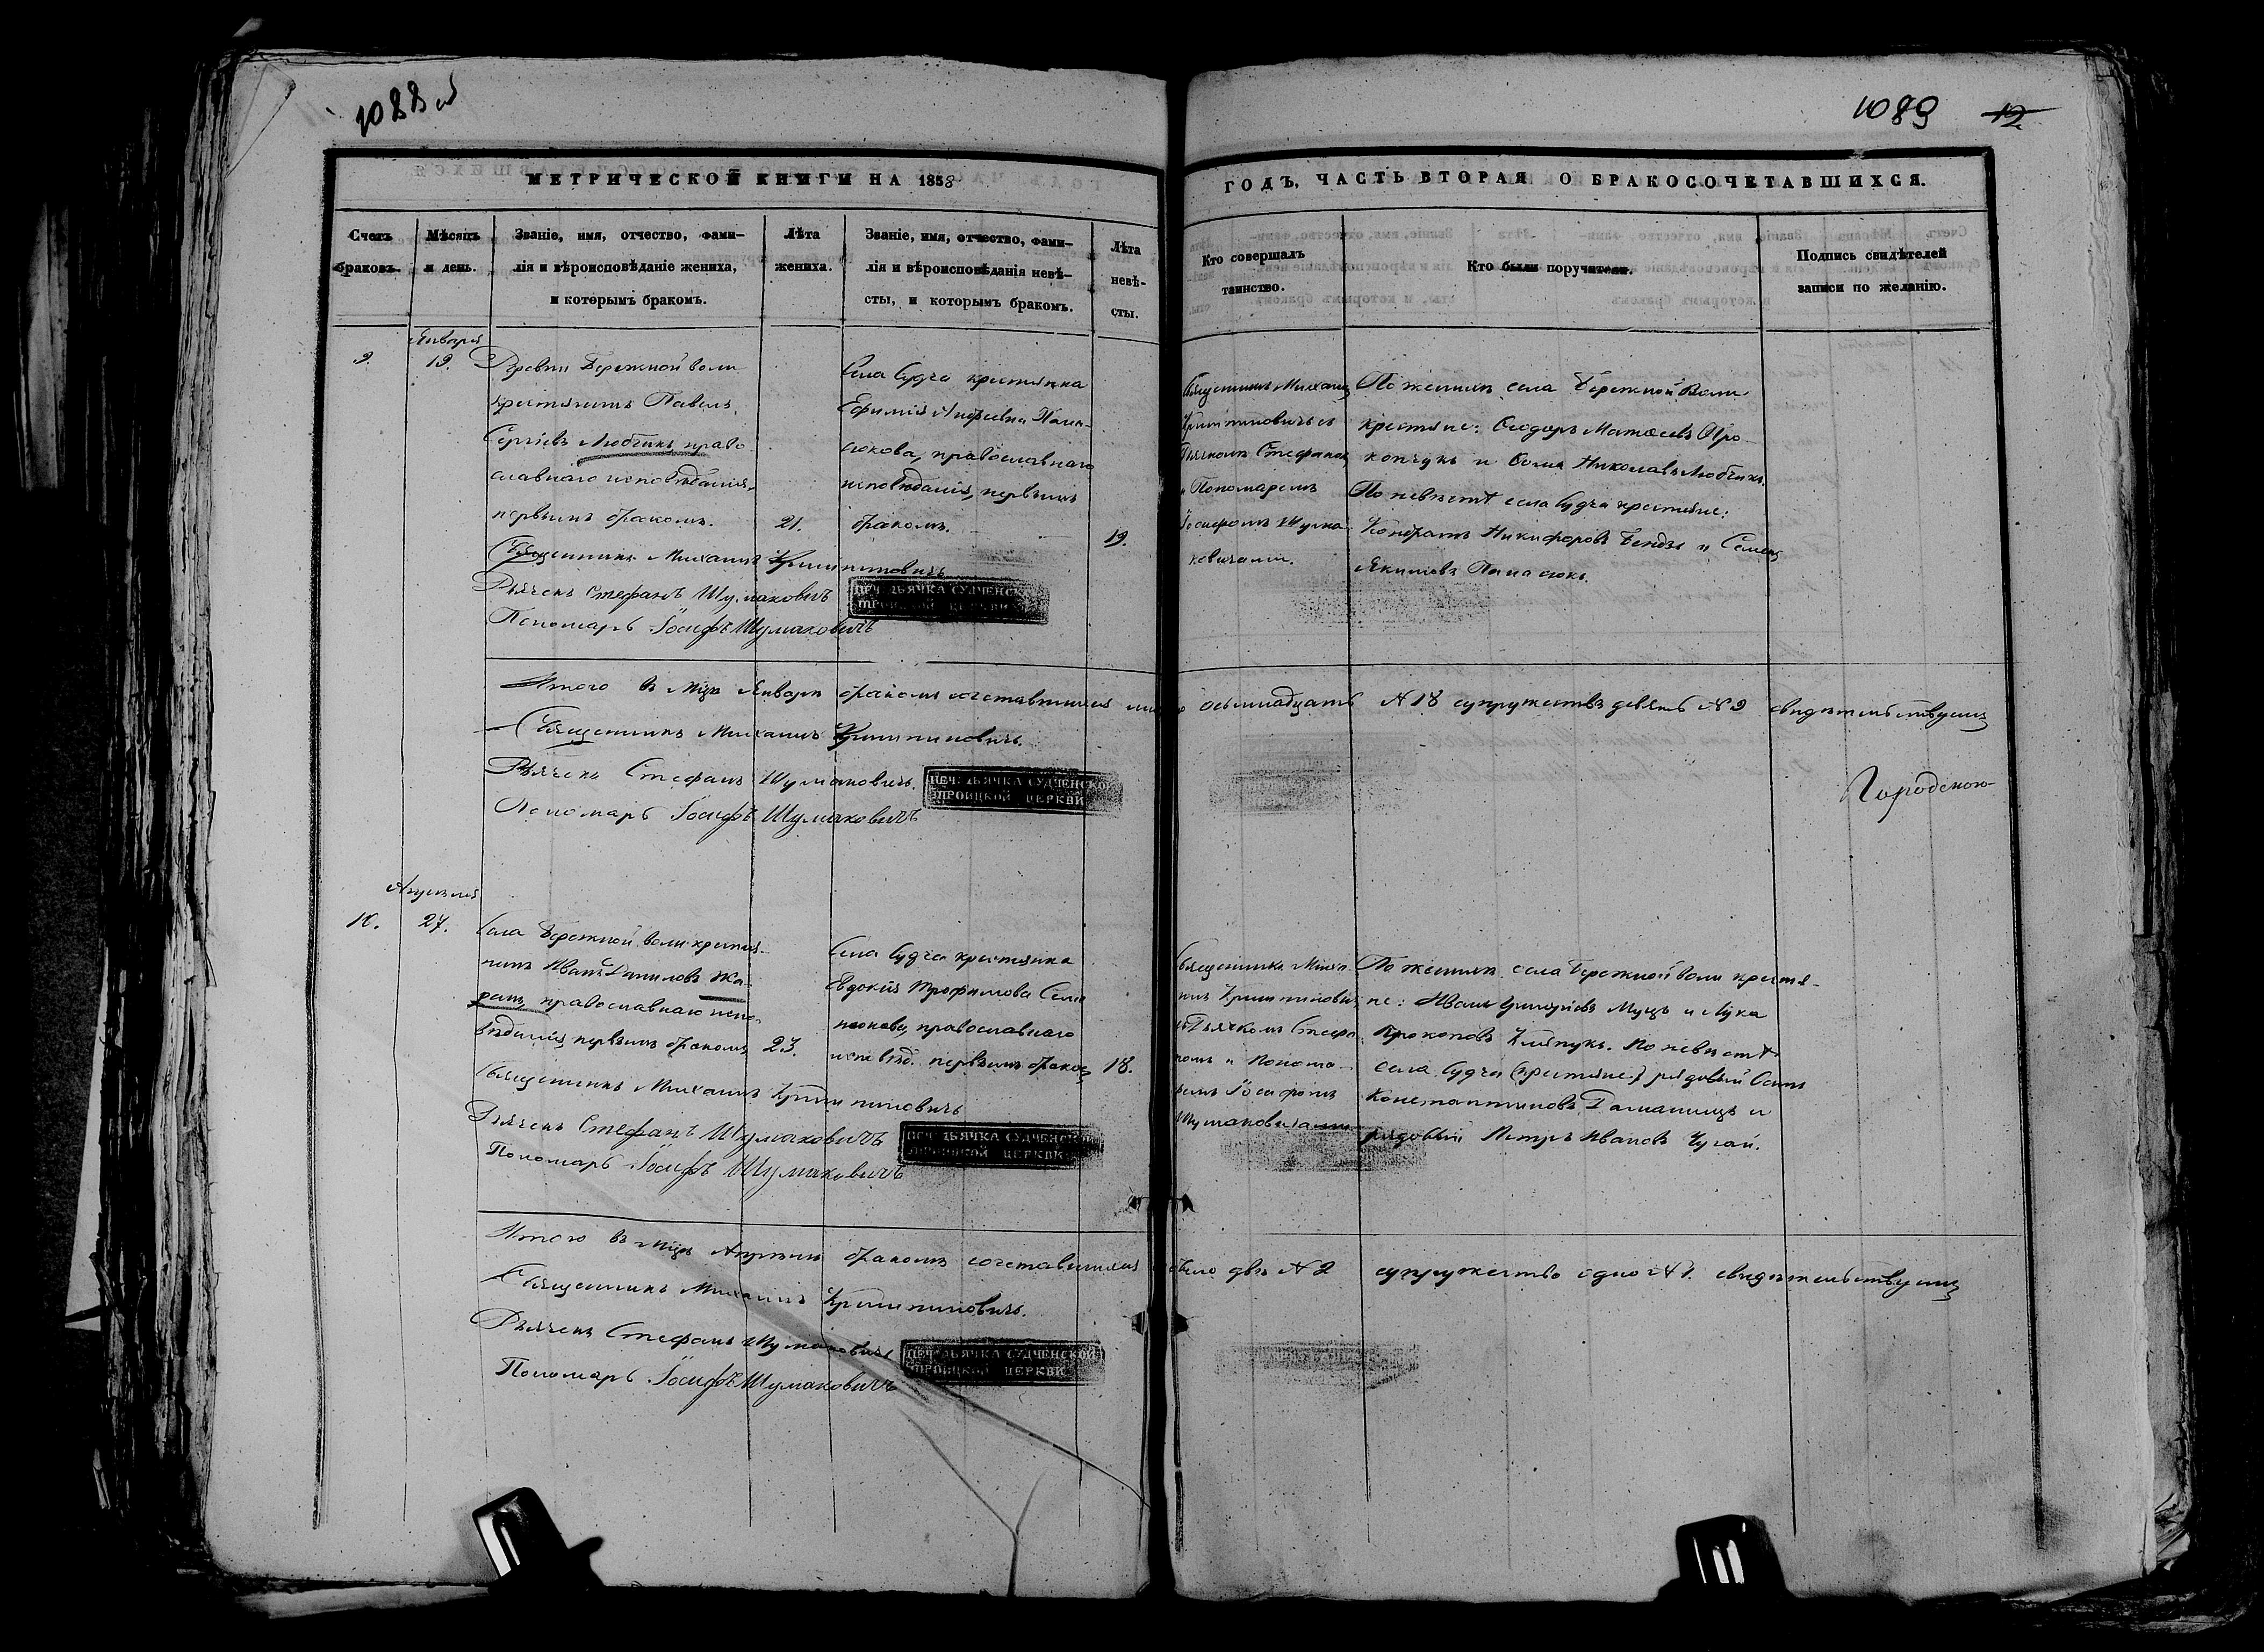 1088 об
1089 12
МЕТРИЧЕСКОЙ КНИГИ НА 1858
ГОДЪ, ЧАСТЬ ВТОРАЯ О БРАКОСОЧЕТАВШИХСЯ.
Счетъ
браковъ.
Мѣсяцъ
и день.
Званіе, имя, отчество, фами-
лія и вѣроисповѣданіе жениха,
и которымъ бракомъ.
Лѣта
жениха.
Званіе, имя, отчество, фами-
лія и вѣроисповѣданія невѣ-
сты, и которымъ бракомъ.
Лѣта
невѣ-
сты.
Кто совершалъ
таинство.
Кто были поручители.
Подпись свидѣтелей
записи по желанію.
9.
Января
19.
Деревни Бережной воли
крестянинъ Павелъ
Сергіевъ Любчикъ, право-
славнаго исповѣданія,
первымъ бракомъ.
21.
Села Судча крестянка
Ефимія Андреевна Пана-
сюкова, православнаго
исповѣданія, первымъ
бракомъ.
19.
Священникъ Михаилъ
съ
Дьячкомъ Стефаномъ
и Пономаремъ
Іосифомъ Шума-
ковичами.
По женихѣ села Бережной Воли
крестяне: Ѳеодоръ Матѳеевъ Про-
копчукъ и Ѳома Николаевъ Любчикъ.
По невѣстѣ села Судча крестяне:
Кондратъ Никифоровъ Бендзь и Семенъ
Якимовъ Панасюкъ.
Священникъ Михаилъ
Дьячекъ Стефанъ Шумаковичъ
Пономарь Іосифъ Шумаковичъ
ПЕЧ: ДЬЯЧКА СУДЧЕНСКОЙ
ТРОИЦКОЙ ЦЕРКВИ
Итого въ мцѣ Январѣ бракомъ сочетавшихся осьмнадцать № 18 супружествъ девять № 9 свидѣтельствуемъ
Священникъ Михаилъ
Дьячекъ Стефанъ Шумаковичъ.
Пономарь Іосифъ Шумаковичъ
ПЕЧ: ДЬЯЧКА СУДЧЕНСКОЙ
ТРОИЦКОЙ ЦЕРКВИ
10.
Апрѣля
27.
Села Бережной воли крестя-
нинъ Иванъ Даниловъ Жа-
ранъ, православнаго испо-
вѣданія, первымъ бракомъ
23.
Села Судча крестянка
Евдокія Трофимова Семе-
нюкова, православнаго
исповѣд. первымъ бракомъ
18.
Священникъ Миха-
илъ
съ Дьячкомъ Стефа-
номъ и Понома-
ремъ Іосифомъ
Шумаковичами
По женихѣ села Бережной воли крестя-
не: Иванъ Григоріевъ Муць и Лука
Прокоповъ Климукъ. По невѣстѣ
села Судча (крестяне) рядовый Осипъ
Константиновъ и
рядовый Петръ Ивановъ Чугай.
Священникъ Михаилъ
Дьячекъ Стефанъ Шумаковичъ
Пономарь Іосифъ Шумаковичъ
ПЕЧ: ДЬЯЧКА СУДЧЕНСКОЙ
ТРОИЦКОЙ ЦЕРКВИ
Итого въ мцѣ Апрѣли бракомъ сочетавшихся было два № 2 супружество одно № 1. свидѣтельствуемъ
Священникъ Михаилъ
Дьячекъ Стефанъ Шумаковичъ
Пономарь Іосифъ Шумаковичъ
ПЕЧ: ДЬЯЧКА СУДЧЕНСКОЙ
ТРОИЦКОЙ ЦЕРКВИ